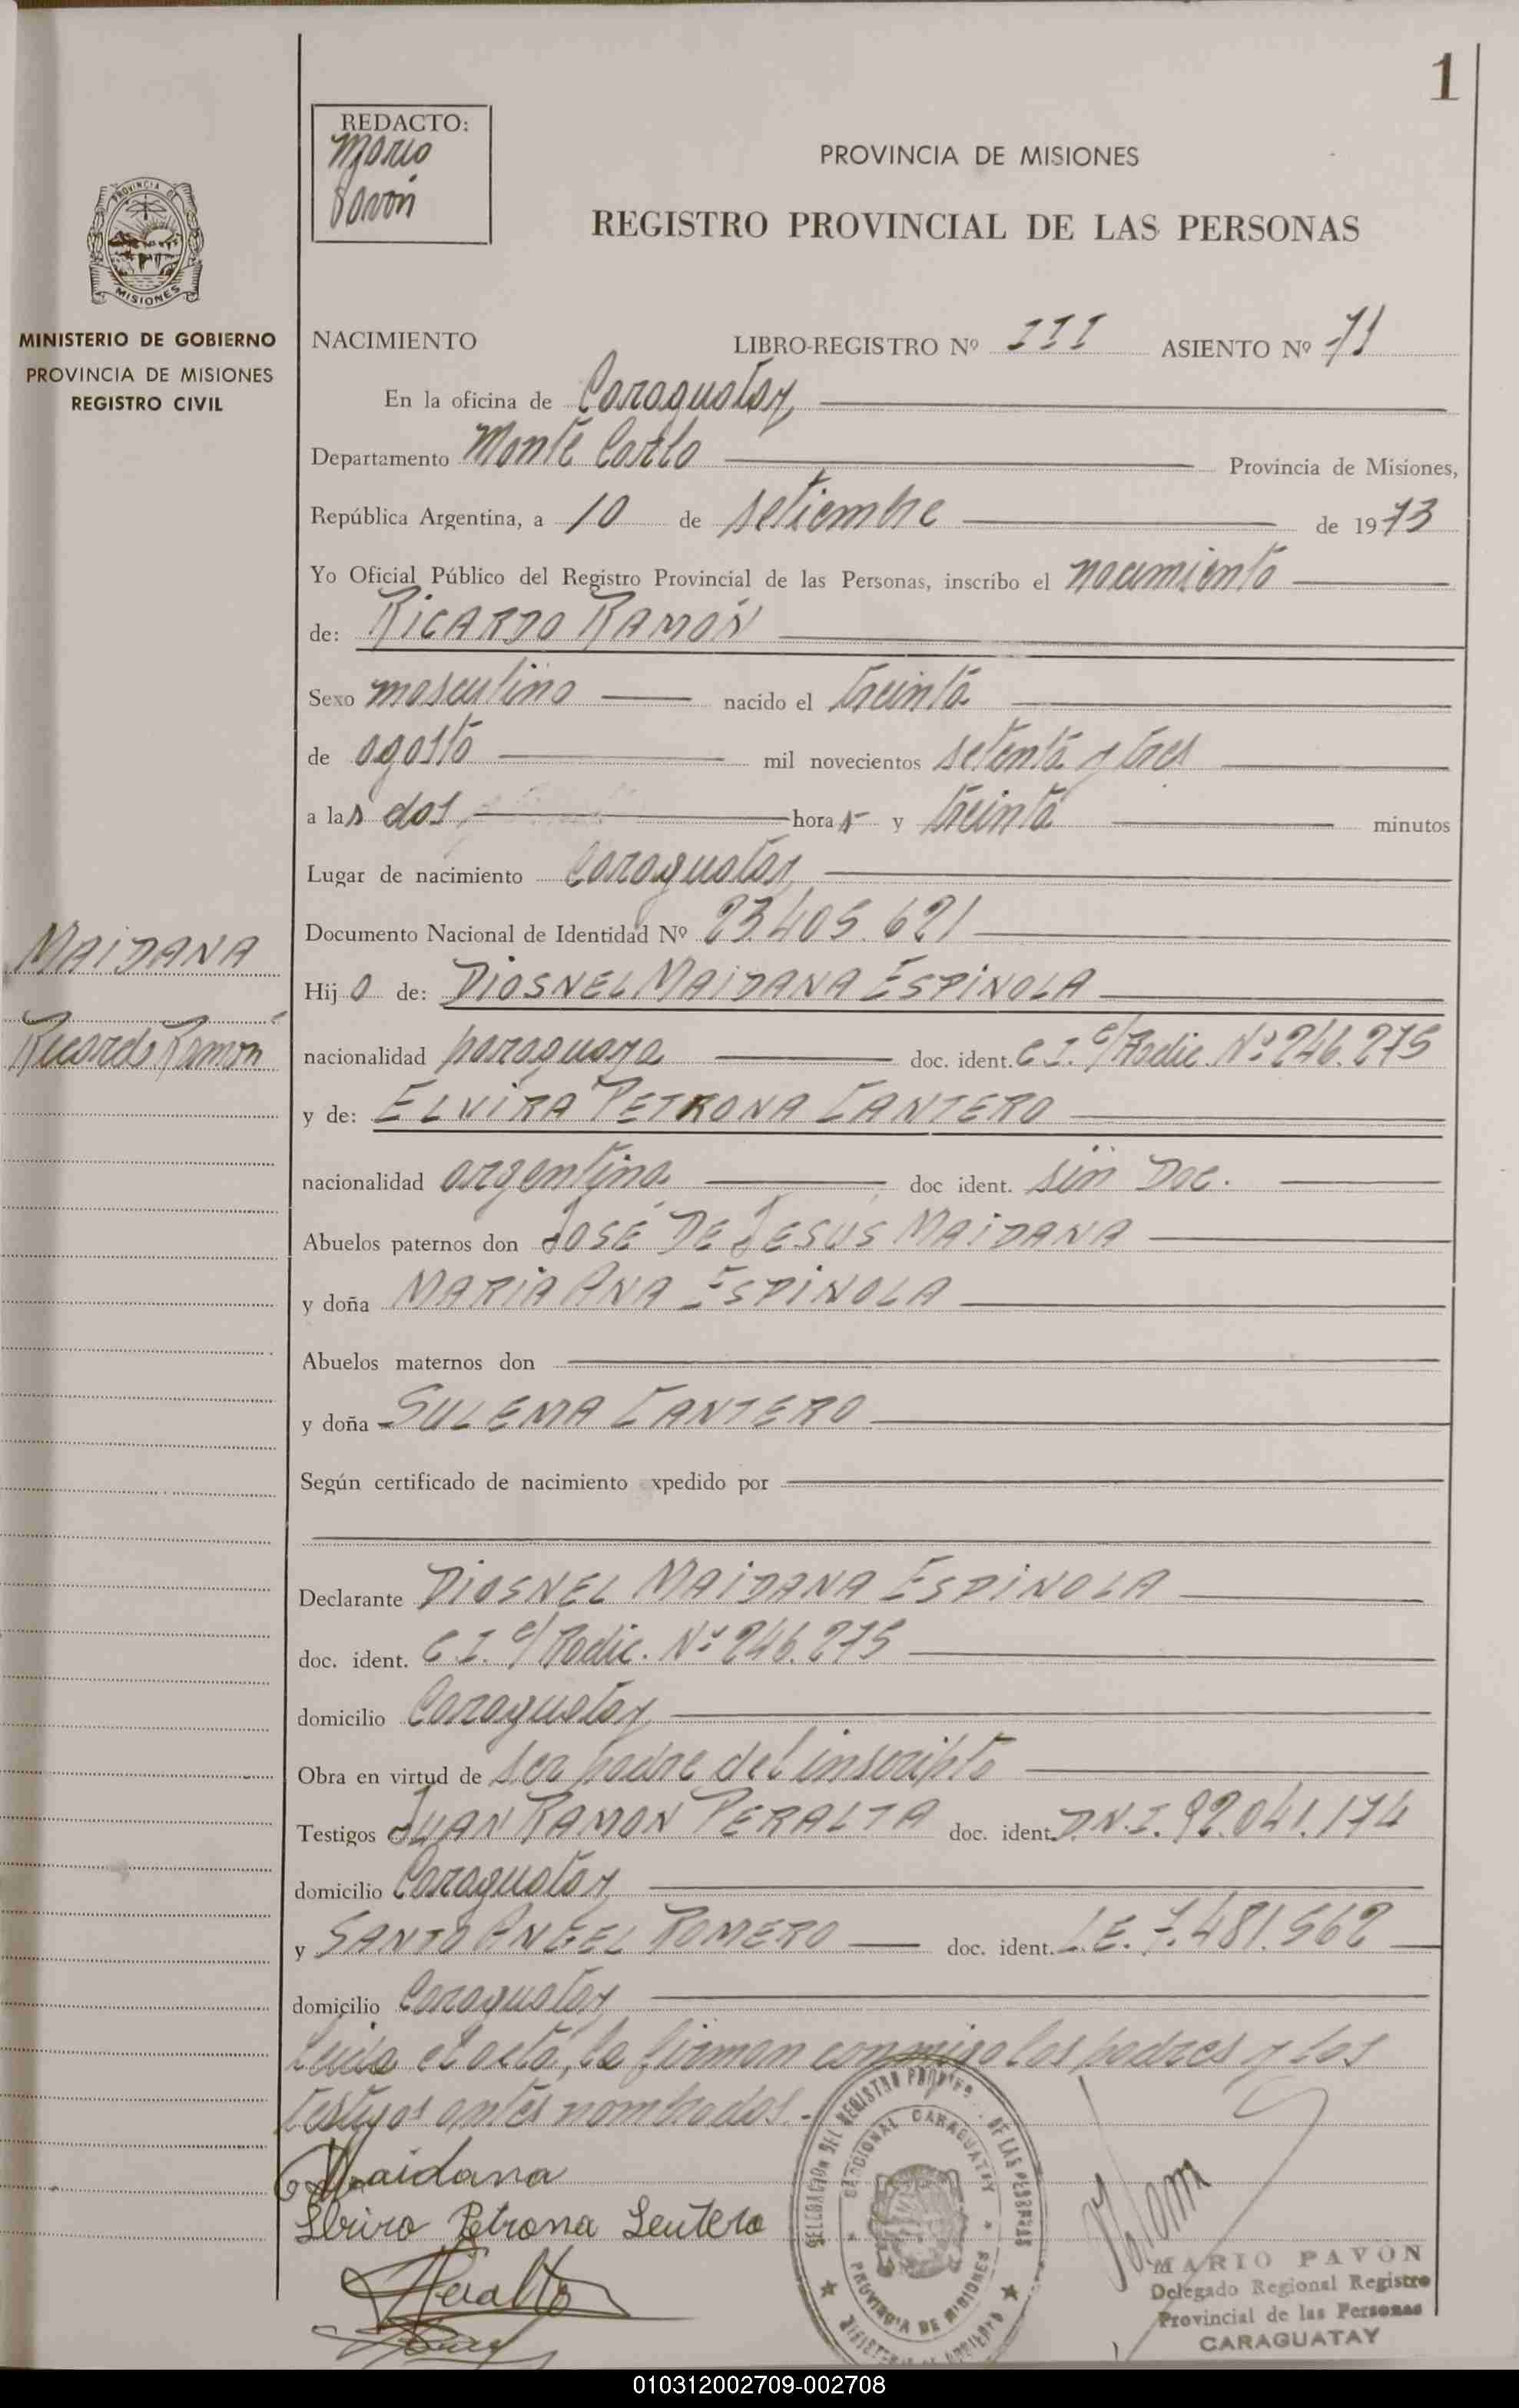 1
REDACTO:
Mario
Pavón
PROVINCIA DE MISIONES
REGISTRO PROVINCIAL DE LAS PERSONAS
PROVINCIA DE
MISIONES
MINISTERIO DE GOBIERNO
PROVINCIA DE MISIONES
REGISTRO CIVIL
NACIMIENTO LIBRO-REGISTRO Nº III ASIENTO Nº 71
En la oficina de Caraguatay,
Departamento Monte Carlo Provincia de Misiones,
República Argentina, a 10 de setiembre de 1973
Yo Oficial Público del Registro Provincial de las Personas, inscribo el nacimiento
de: RICARDO RAMÓN
Sexo masculino nacido el treinta
de agosto mil novecientos setenta y tres
a las dos, horas y treinta minutos
Lugar de nacimiento Caraguatay,
Documento Nacional de Identidad Nº 23.405.621
MAIDANA
Ricardo Ramón
Hijo de: DIOSNEL MAIDANA ESPINOLA
nacionalidad paraguaya doc. ident. C.I. c/ Radic. Nº 246.275
y de: ELVIRA PETRONA CANTERO
nacionalidad argentina doc ident. sin Doc.
Abuelos paternos don JOSÉ DE JESÚS MAIDANA
y doña MARIA ANA ESPINOLA
Abuelos maternos don
y doña SULEMA CANTERO
Según certificado de nacimiento expedido por
Declarante DIOSNEL MAIDANA ESPINOLA
doc. ident. C.I. c/ Radic. Nº 246.275
domicilio Caraguatay
Obra en virtud de ser padre del inscripto
Testigos JUAN RAMON PERALTA doc. ident. D.N.I. 92.041.174
domicilio Caraguatay,
y SANTO ANGEL ROMERO doc. ident. L.E. 7.481.562
domicilio Caraguatay
Leida el acta, la firman conmigo los padres y los
testigos antes nombrados.-
Maidana
Petrona
Peralta
DELEGACION DEL REGISTRO PROVINCIAL DE LAS PERSONAS
SECCIONAL CARAGUATAY
PROVINCIA DE MISIONES
MARIO PAVÓN
Delegado Regional Registro
Provincial de las Personas
CARAGUATAY
010312002709-002708